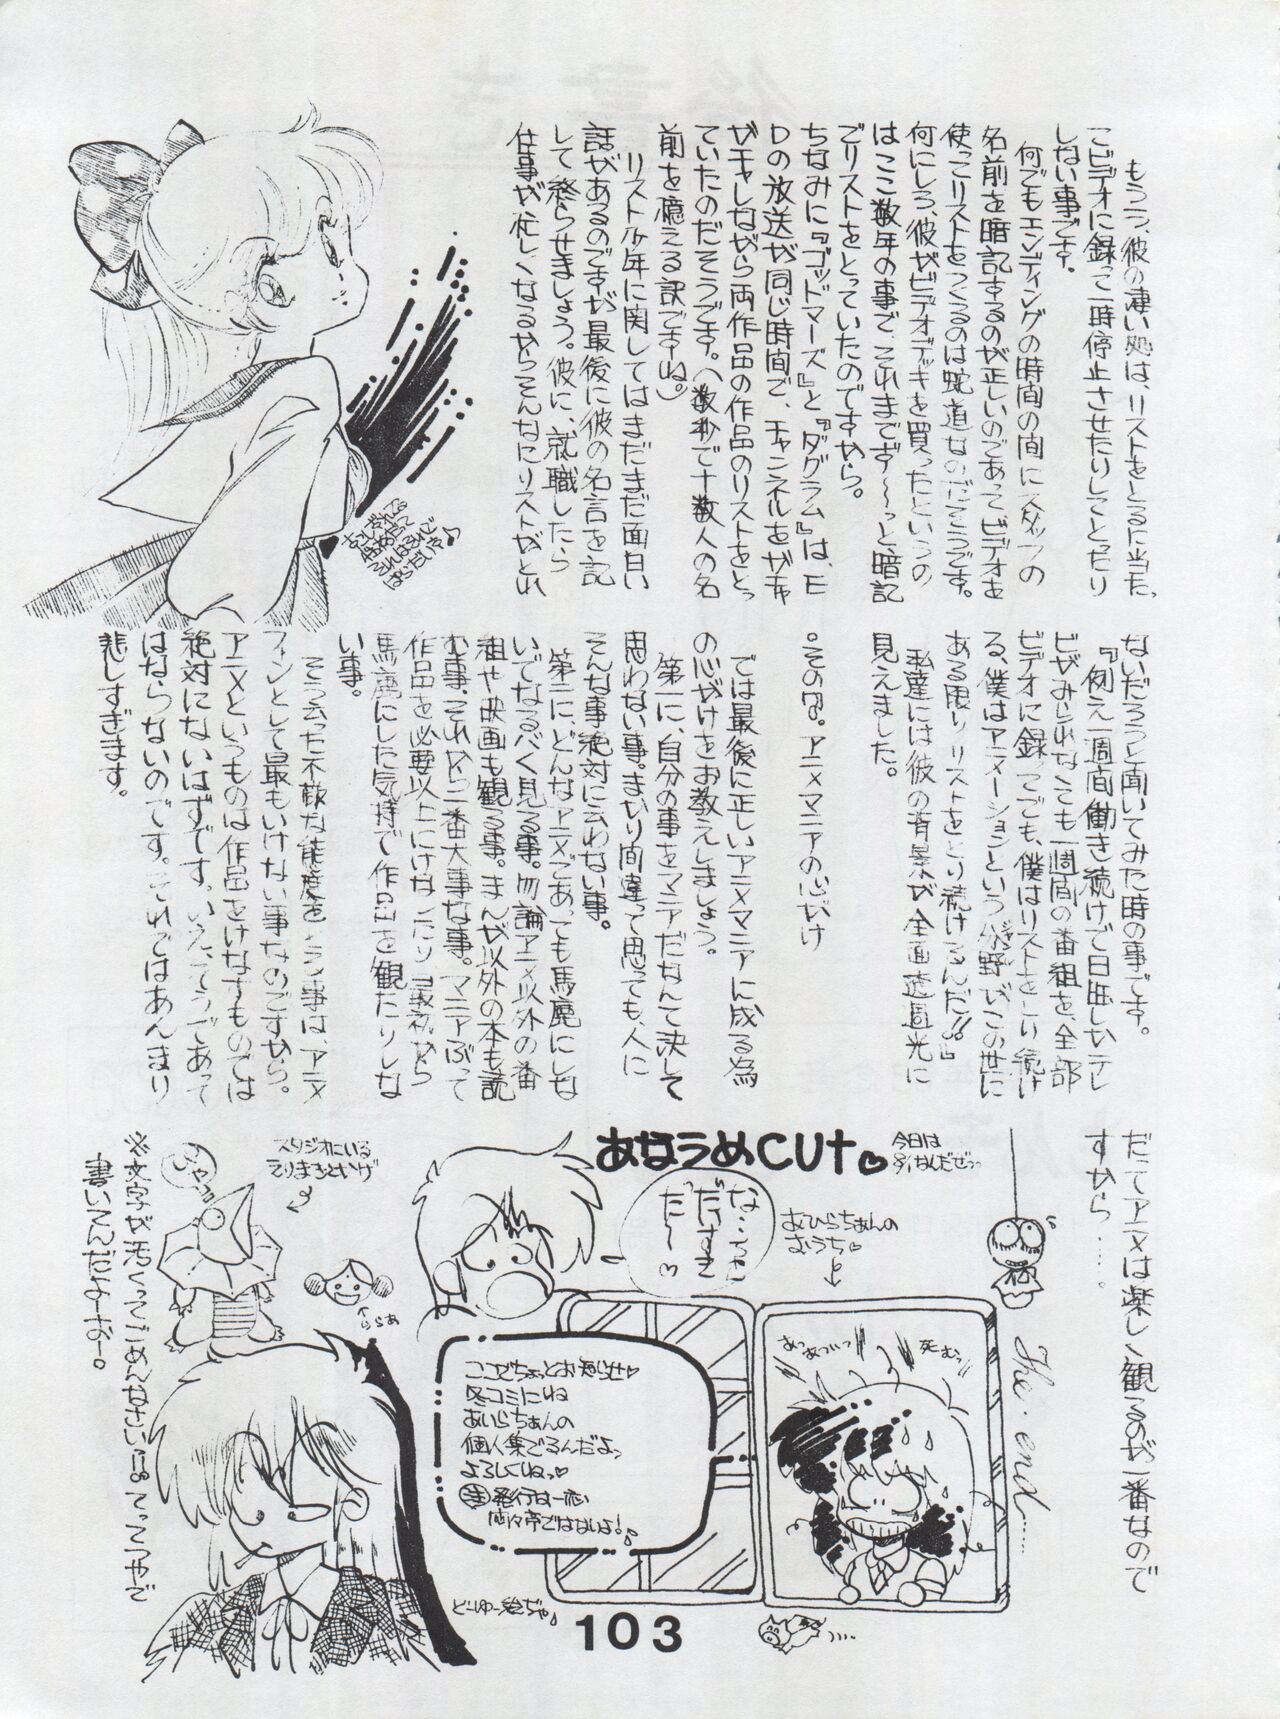 もう一つ、彼の凄い処は、リストをとるに当たっ
てビデオに録って一時停止させたりしてとったり
しない事です。
何でもエンディングの時間の間にスタッフの
名前を暗記するのが正しいのであってビデオを
使ってリストをつくるのは蛇道なのだそうです。
何にしろ、彼がビデオデッキを買ったというの
はここ数年の事で、それまでず〜〜っと、暗記
でリストをとっていたのですから。
ちなみに『ゴッドマーズ』と『ダグラム』は、E
Dの放送が同じ時間で、チャンネルをガチャ
ガチャしながら両作品の作品のリストをとっ
ていたのだそうです。(数秒で十数人の名
前を憶える訳ですね。)
リスト少年に関してはまだまだ面白い
話があるのですが最後に彼の名言を記
して終らせましょう。彼に、就職したら
仕事が忙しくなるからそんなにリストがとれ
ないだろうと聞いてみた時の事です。
『例え一週間働き続けで日曜しかテレ
ビがみれなくても一週間の番組を、全部
ビデオに録ってでも、僕はリストをとり続け
る、僕はアニメーションという分野がこの世に
ある限りリストをとり続けるんだ!!』
私達には彼の背景が全面透過光に
見えました。
。その四。アニメマニアの心がけ
では最後に正しいアニメマニアに成る為
の心がけをお教えしましょう。
第一に、自分の事をマニアだなんて決して
思わない事。まかり間違って思っても、人に
そんな事絶対に云わない事。
第二に、どんなアニメであっても馬鹿にしな
いでなるべく見る事。勿論アニメ以外の番
組や映画も観る事。まんが以外の本も読
む事、それから一番大事な事。マニアぶって
作品を必要以上にけなしたり、最初から
馬鹿にした気持で作品を観たりしな
い事。
そう云った不敬な態度をとる事は、アニメ
ファンとして最もいけない事なのですから。
アニメというものは作品をけなすものでは
絶対にないはずです。いえ、そうであって
はならないのです。それではあんまり
悲しすぎます。
だってアニメは楽しく観るのが一番なので
すから……。
The・end……
あなうめCUT♡
今日は
8/1なんだぜっ
な…なんて
だいすき
だ〜♡
あひらちゃんの
おうち♡
あつあついっ
死むっ!!
ここでちょっとお知らせ♡
冬コミにね
あいらちゃんの
個人集でるんだよっ
よろしくねっ♡
注発行は一応
悠々亭ではないよ!
どーゆー絵ぢゃ
スタジオにいる
えりまきとかげ
ららぁ
※文字が汚くってごめんなさいっ酔ってってつやで
書いてんだよーおー。
103